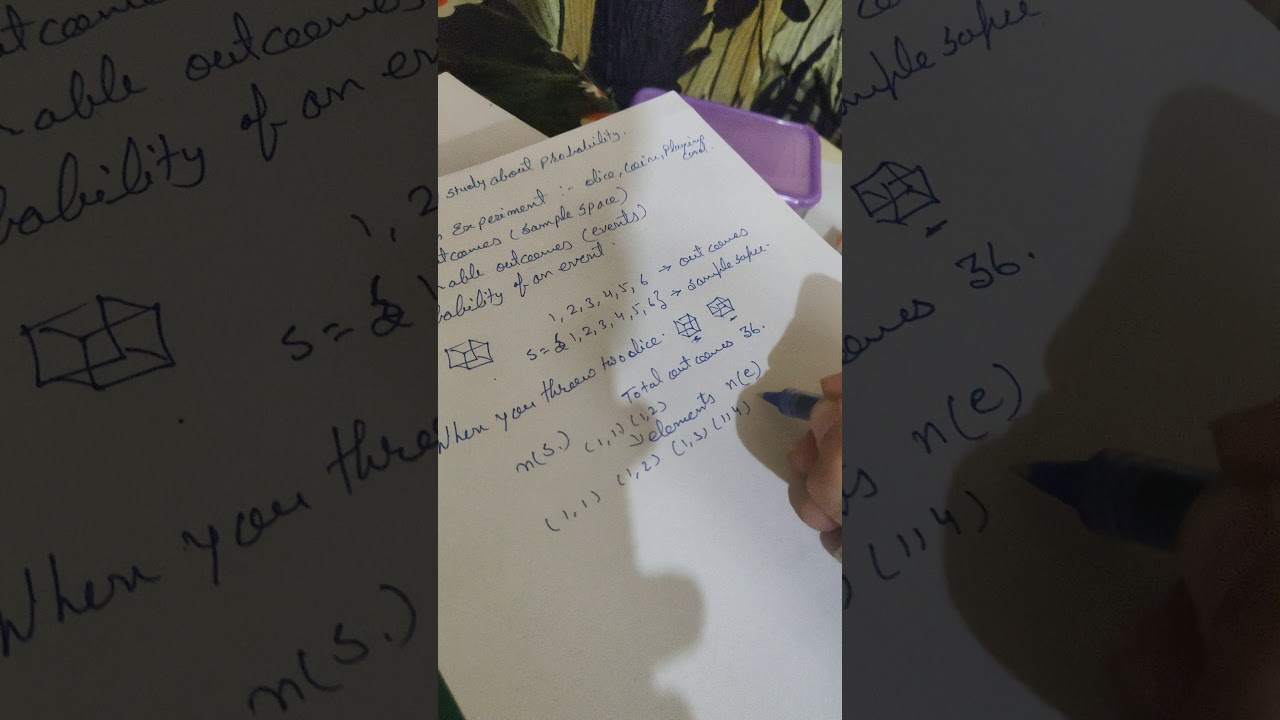 study about probability.
Experiment :- dice, coin, Playing
card.
tcomes (sample space)
able outcomes (events)
bability of an event.
1, 2, 3, 4, 5, 6 → outcomes
S = { 1, 2, 3, 4, 5, 6} → sample sapce.
When you throw two dice.
Total outcomes 36.
n(S.) (1,1) (1,2)
elements n(e)
(1,1) (1,2) (1,3) (1,4)